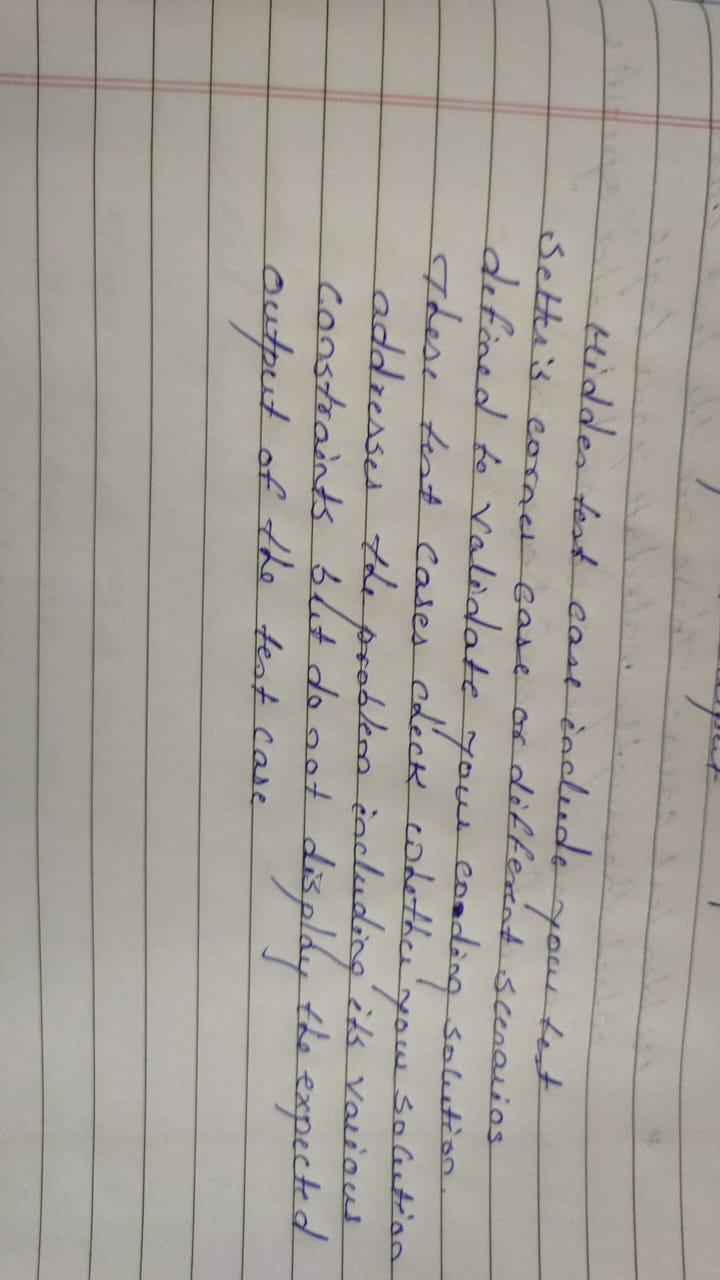 Hidden test case include your test
Setter's corner case or different scenarios
defined to validate your coding solution.
These test cases check whether your solution
addresses the problem including its various
constraints but do not display the expected
output of the test case